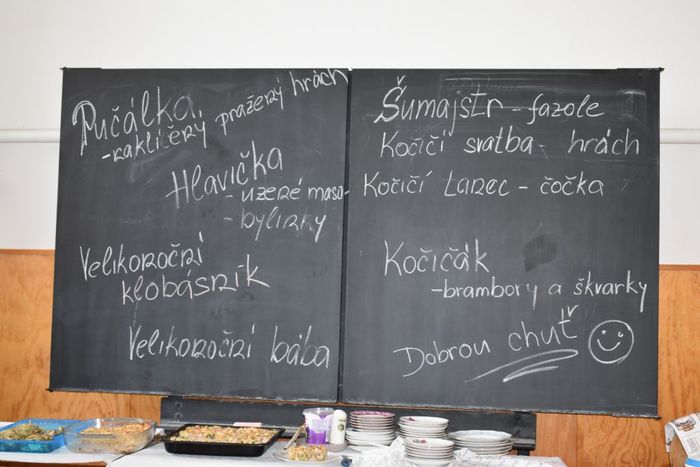 Pučálka
- naklíčený pražený hrách
Hlavička
- uzené maso
- bylinky
Velikonoční
klobásník
Velikonoční bába
Šumajstr - fazole
Kočičí svatba - hrách
Kočičí tanec - čočka
Kočičák
- brambory a škvarky
Dobrou chuť